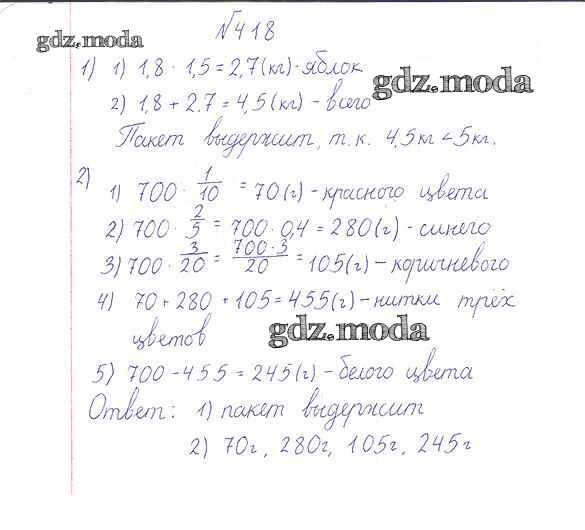 №418
gdz.moda
1) 1) 1,8 · 1,5 = 2,7 (кг) - яблок
gdz.moda
2) 1,8 + 2.7 = 4,5 (кг) - всего
Пакет выдержит, т.к. 4,5кг < 5кг.
2)
1) 700 · 1/10 = 70 (г) - красного цвета
2) 700 · 2/5 = 700 · 0,4 = 280 (г) - синего
3) 700 · 3/20 = 700·3/20 = 105 (г) - коричневого
4) 70 + 280 + 105 = 455 (г) - нитки трёх
цветов
gdz.moda
5) 700 - 455 = 245 (г) - белого цвета
Ответ: 1) пакет выдержит
2) 70г, 280г, 105г, 245г